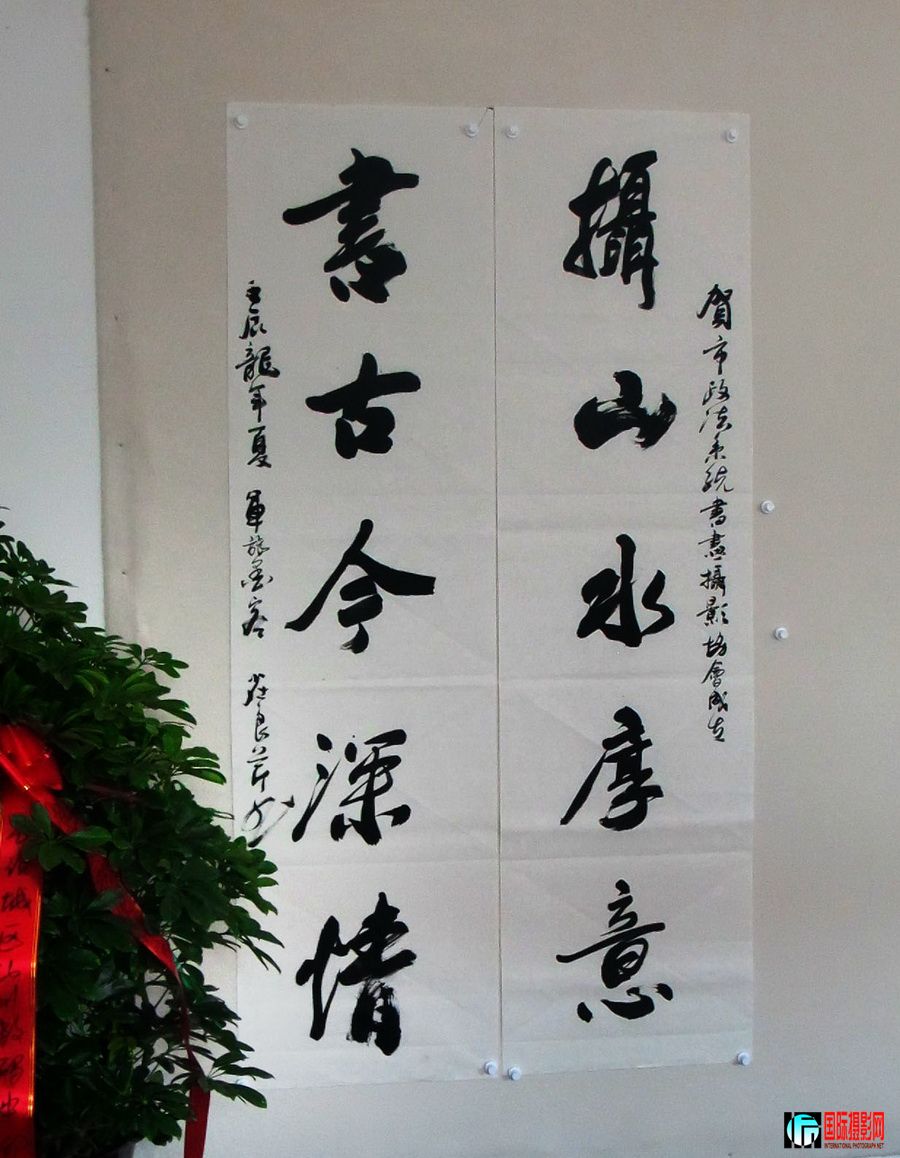 賀市政法系統書畫攝影協會成立
攝山水厚意
書古今深情
壬辰龍年夏 軍旅墨客 莊良
国际摄影网
INTERNATIONAL PHOTOGRAPH.NET